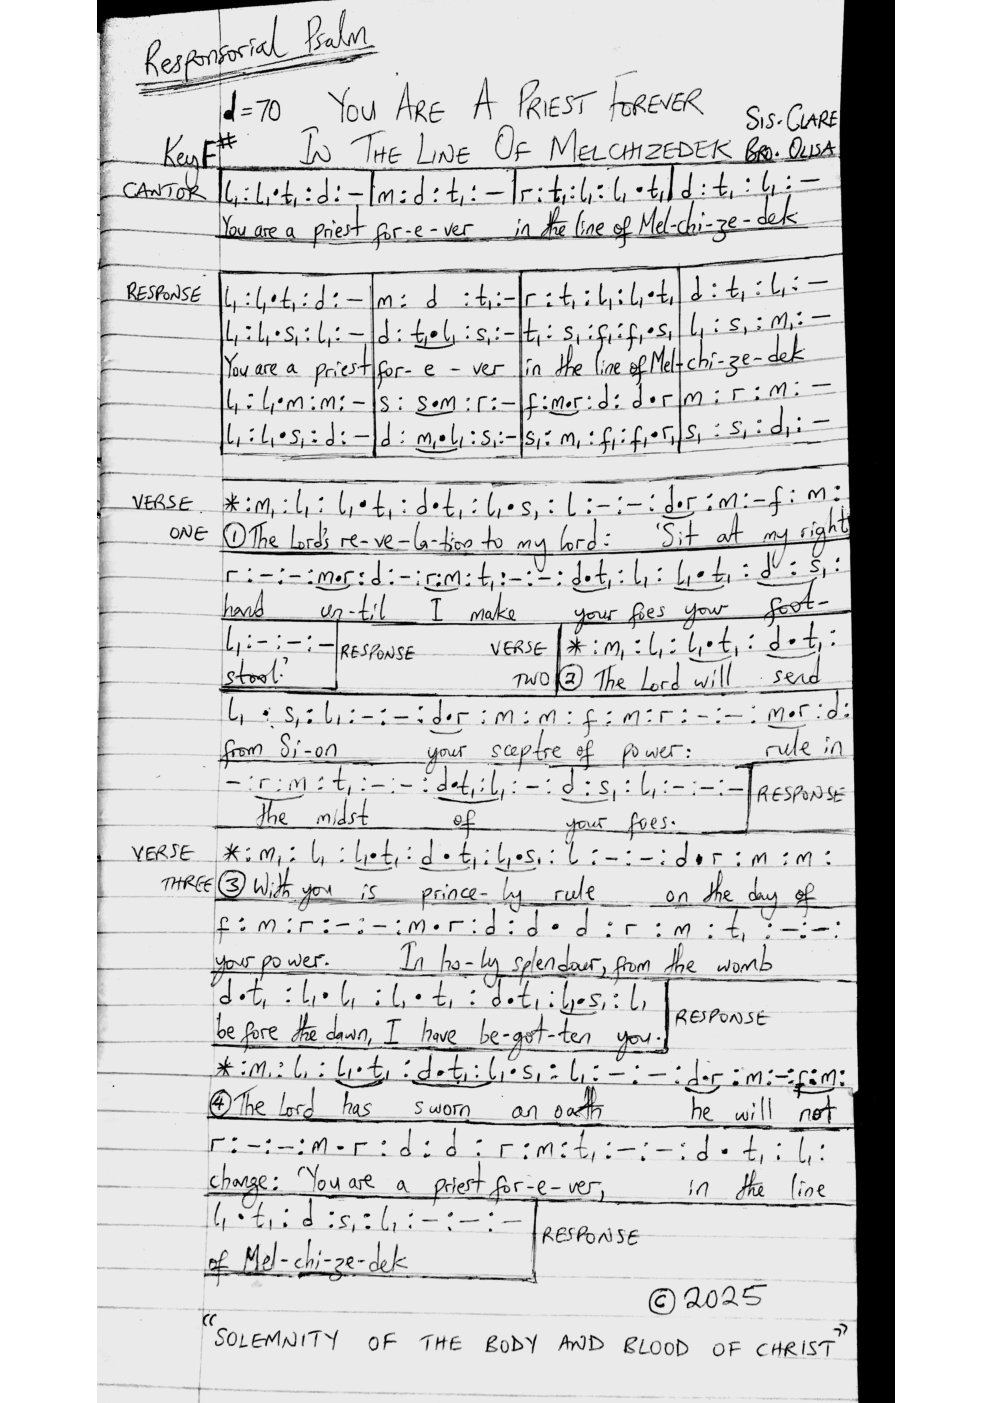 Responsorial Psalm
d=70 YOU ARE A PRIEST FOREVER
SIS. CLARE
Key F# IN THE LINE OF MELCHIZEDEK BRO. OLISA
CANTOR l₁:l₁•t₁:d:–|m:d:t₁:–|r:t₁:l₁:l₁•t₁|d:t₁:l₁:–
You are a priest for-e-ver in the line of Mel-chi-ze-dek
RESPONSE l₁:l₁•t₁:d:–|m: d :t₁:–|r:t₁:l₁:l₁•t₁|d:t₁:l₁:–
l₁:l₁•s₁:l₁:–|d:t₁•l₁:s₁:–|t₁:s₁:f₁:f₁•s₁|l₁:s₁:m₁:–
You are a priest for-e-ver in the line of Mel-chi-ze-dek
l₁:l₁•m:m:–|s:s•m:r:–|f:m•r:d:d•r|m:r:m:–
l₁:l₁•s₁:d:–|d:m₁•l₁:s₁:–|s₁:m₁:f₁:f₁•r₁|s₁:s₁:d₁:–
VERSE ONE *:m₁:l₁:l₁•t₁:d•t₁:l₁•s₁:l:–:–:d•r:m:–f:m:
① The Lord's re-ve-la-tion to my lord: 'Sit at my right
r:–:–:m•r:d:–:r:m:t₁:–:–:d•t₁:l₁:l₁•t₁:d:s₁:
hand un-til I make your foes your foot-
l₁:–:–:–|RESPONSE VERSE TWO |*:m₁:l₁:l₁•t₁:d•t₁:
stool.' ② The Lord will send
l₁•s₁:l₁:–:–:d•r:m:m:f:m:r:–:–:m•r:d:
from Si-on your sceptre of power: rule in
–:r:m:t₁:–:–:d•t₁:l₁:–:d:s₁:l₁:–:–:–|RESPONSE
the midst of your foes.
VERSE THREE *:m₁:l₁:l₁•t₁:d•t₁:l₁•s₁:l:–:–:d•r:m:m:
③ With you is prince-ly rule on the day of
f:m:r:–:–:m•r:d:d•d:r:m:t₁:–:–:
your power. In ho-ly splendour, from the womb
d•t₁:l₁•l₁:l₁•t₁:d•t₁:l₁•s₁:l₁|RESPONSE
before the dawn, I have be-got-ten you.
*:m₁:l₁:l₁•t₁:d•t₁:l₁•s₁:l₁:–:–:d•r:m:–:f:m:
④ The Lord has sworn an oath he will not
r:–:–:m-r:d:d:r:m:t₁:–:–:d•t₁:l₁:
change: "You are a priest for-e-ver, in the line
l₁•t₁:d:s₁:l₁:–:–:–|RESPONSE
of Mel-chi-ze-dek
© 2025
"SOLEMNITY OF THE BODY AND BLOOD OF CHRIST"